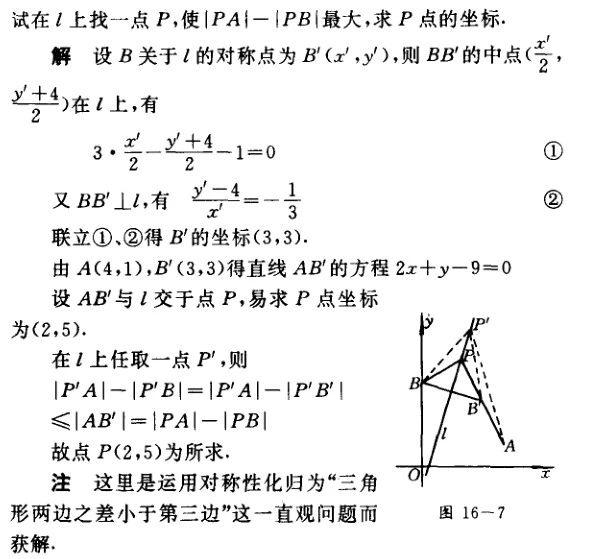 试在 l 上找一点 P,使|PA|－|PB|最大,求 P 点的坐标.
解 设 B 关于 l 的对称点为 B′(x′,y′),则 BB′的中点(x′/2,
(y′+4)/2)在 l 上,有
3·x′/2－(y′+4)/2－1=0 ①
又 BB′⊥l,有 (y′－4)/x′=－1/3 ②
联立①、②得 B′的坐标(3,3).
由 A(4,1),B′(3,3)得直线 AB′的方程 2x+y－9=0
设 AB′与 l 交于点 P,易求 P 点坐标
为(2,5).
在 l 上任取一点 P′,则
|P′A|－|P′B|=|P′A|－|P′B′|
≤|AB′|=|PA|－|PB|
故点 P(2,5)为所求.
注 这里是运用对称性化归为“三角
形两边之差小于第三边”这一直观问题而
获解.
y
P′
P
B
B′
l
A
O
x
图 16－7